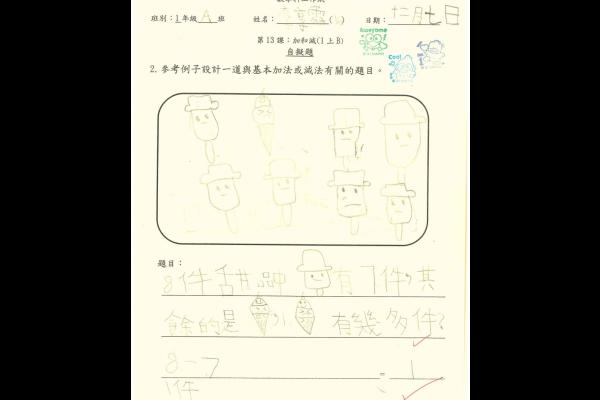 班別：1年級 A 班 姓名： ( ) 日期：十二月七日
第13課：加和減(1上B)
自擬題
2. 參考例子設計一道與基本加法或減法有關的題目。
Awesome
Cool
題目：
8件甜品中 有7件，其
餘的是 有幾多件?
8-7 = 1
1件